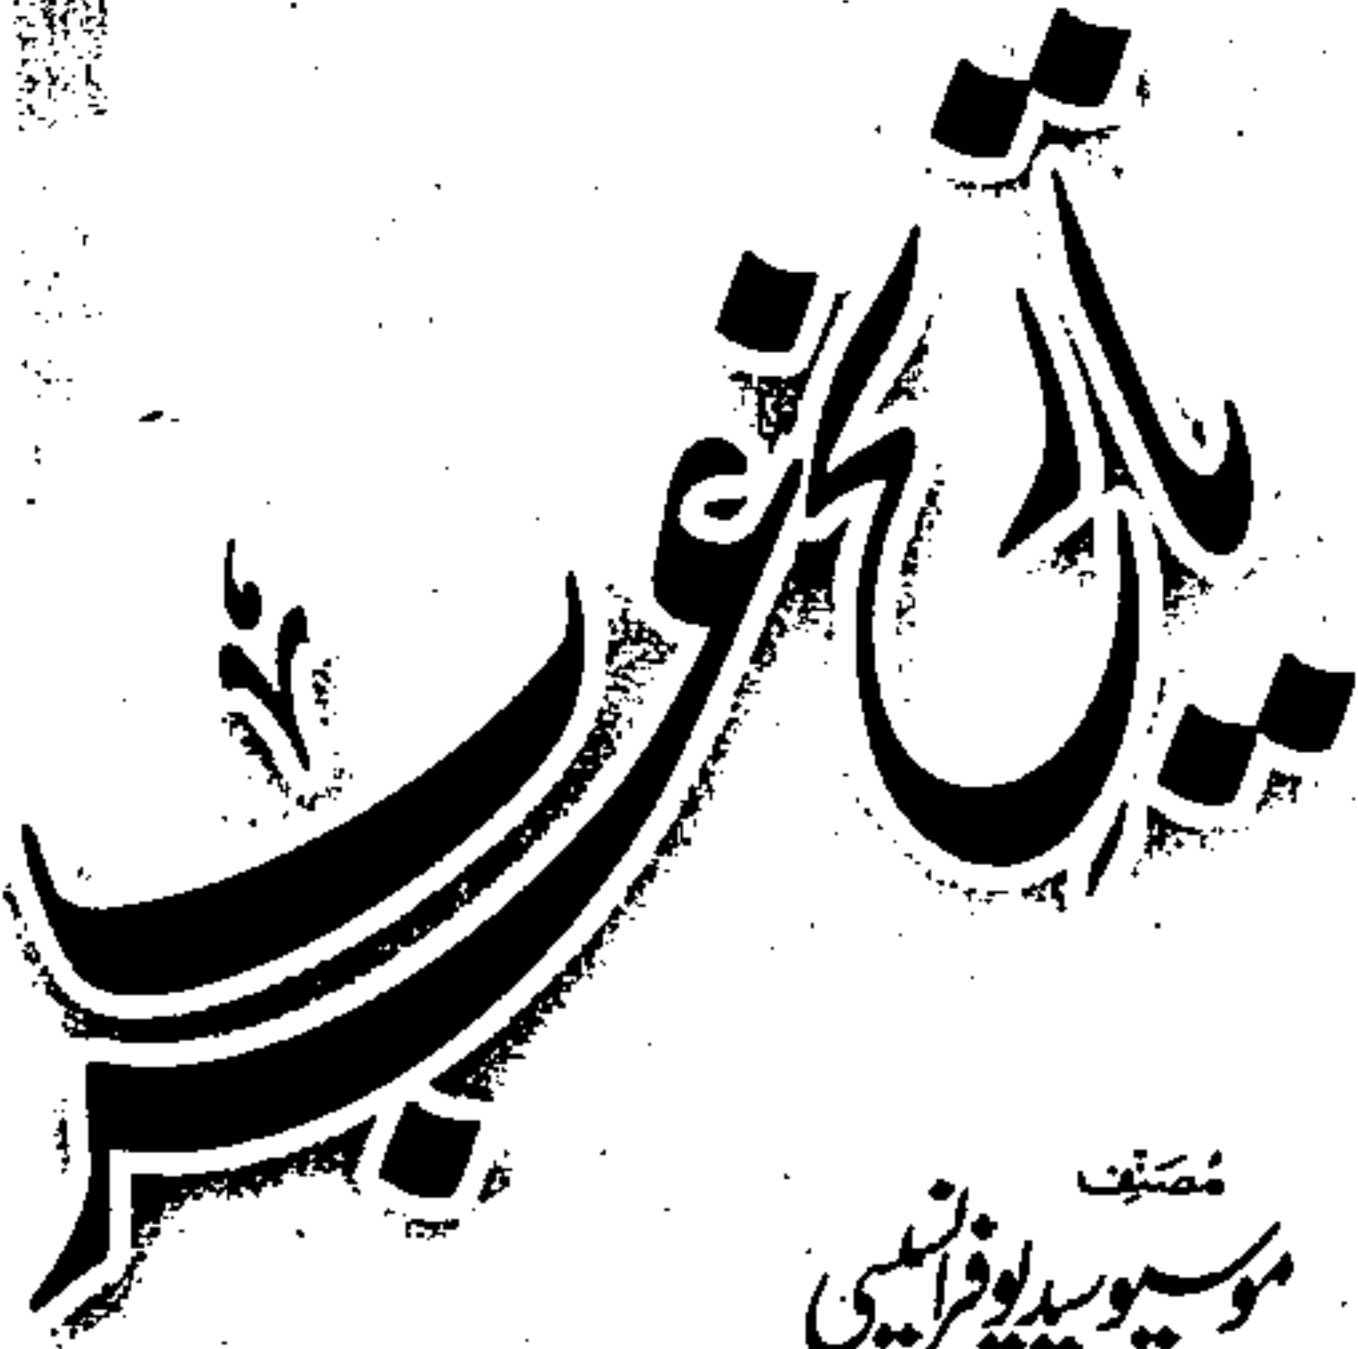 تاریخ عرب
مُصَنِّف
موسیو سیدیو فرانسیسی